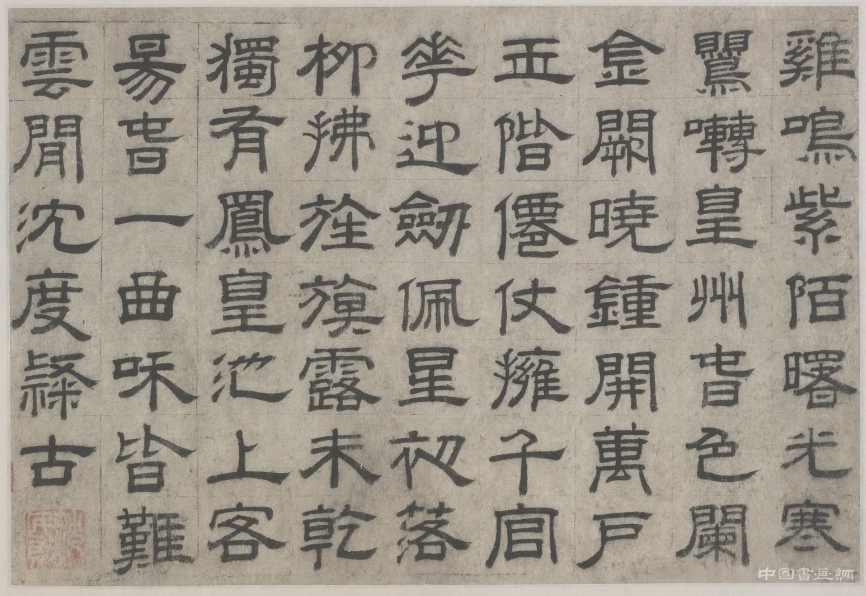 雞鳴紫陌曙光寒
鸎囀皇州旾色闌
金闕曉鍾開萬戶
玉階僊仗擁千官
花迎劒佩星初落
柳拂旌旗露未乾
獨有鳳皇池上客
昜旾一曲咊皆難
雲閒沈度隸古
中國書画網